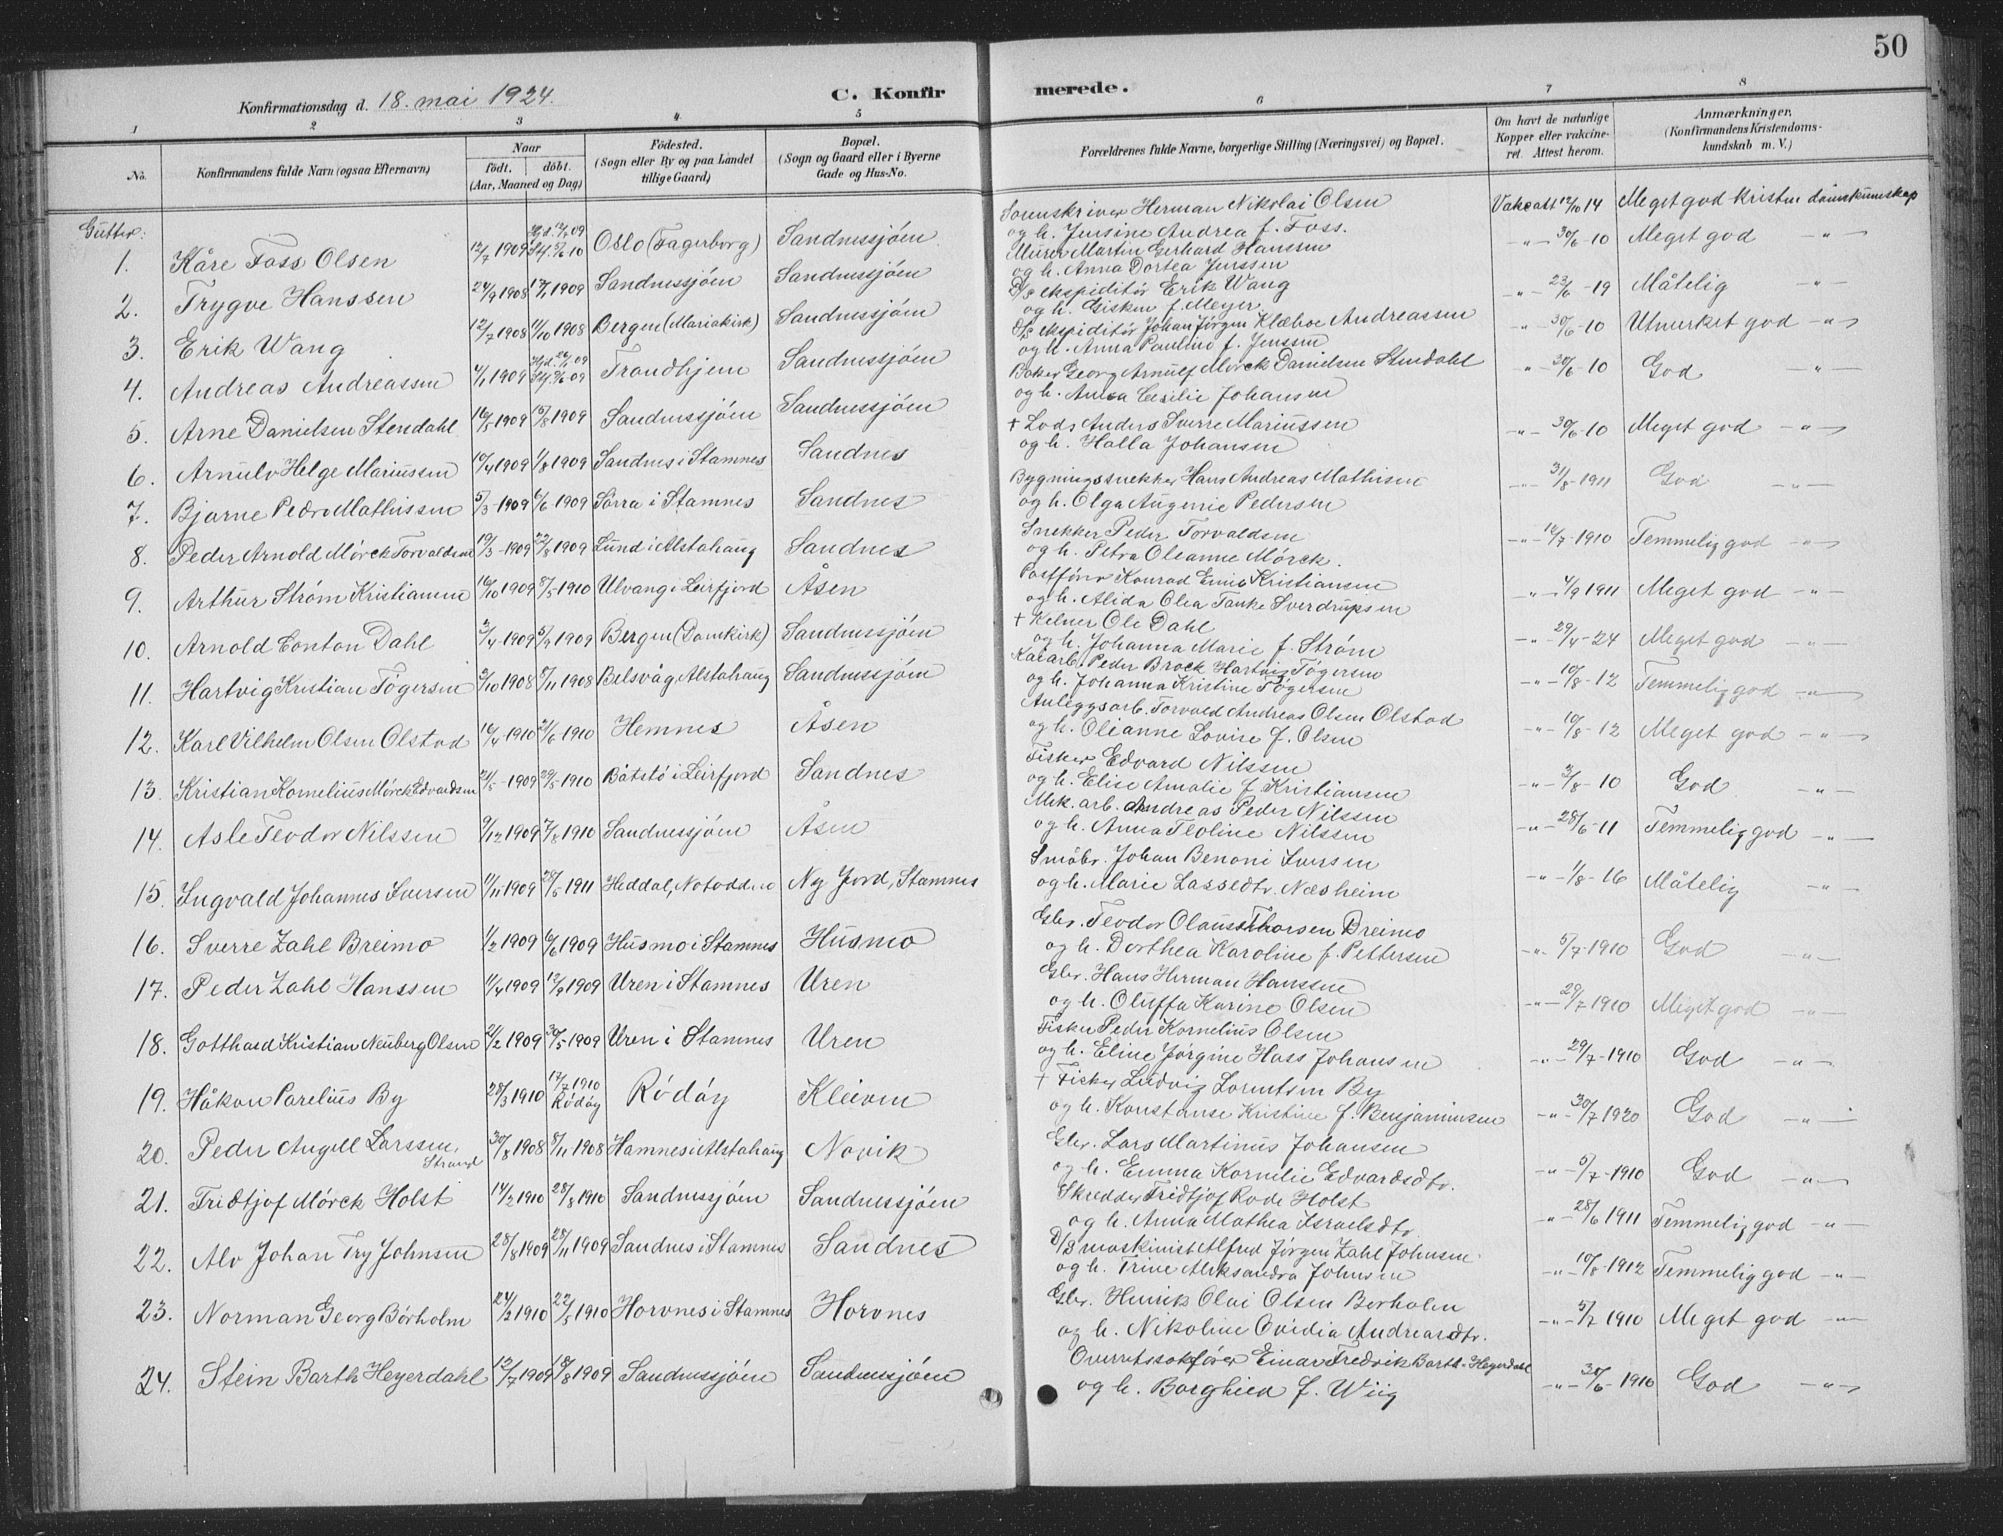 50
Konfirmationsdag d. 18. mai 1924.
C. Konfirmerede.
1 2 3 4 5 6 7 8
No.
Konfirmandens fulde Navn (ogsaa Efternavn)
Naar
födt. döbt.
(Aar, Maaned og Dag)
Födested.
(Sogn eller By og paa Landet
tillige Gaard)
Bopæl.
(Sogn og Gaard eller i Byerne
Gade og Hus-No.
Forældrenes fulde Navne, borgerlige Stilling (Næringsvei) og Bopæl.
Om havt de naturlige
Kopper eller vakcine-
ret. Attest herom.
Anmærkninger.
(Konfirmandens Kristendoms-
kundskab m. V.)
Gutter:
1. Kåre Foss Olsen 12/7 1909 Oslo (Fagerborg) Sandnessjöen Sorenskriver Herman Nikolai Olsen Vakc att 12/10 14 Meget god kristendomskunskap
og h. Jensine Andrea f. Foss.
2. Trygve Hanssen 24/9 1908 1909 Sandnessjöen Sandnessjöen Murer Martin Gerhard Hanssen -"- 30/6-10 Meget god -"-
og h. Anna Dortea Jenssen
3. Erik Wang 12/7 1908 11/10 1908 Bergen (Mariakirk) Sandnessjöen D/S ekspeditör Erik Wang -"- 23/6-19 Måtelig -"-
og h. Gisken f. Meyer.
4. Andreas Andreassen 4/1 1909 Trondhjem Sandnessjöen D/S ekspeditör Johan Jörgen Klæboe Andreassen -"- 30/6-10 Utmerket god -"-
og h. Anna Pauline f. Jenssen
5. Arne Danielsen Stendahl 16/5 1909 15/8 1909 Sandnessjöen Sandnessjöen Baker Georg Arnulf Mörck Danielsen Stendahl -"- 30/6-10 God -"-
og h. Anna Cecilie Johansen
6. Arnulv Helge Mariussen 1909 1/8 1909 Sandnes i Stamnes Sandnes + Lods Anders Sverre Mariussen -"- 30/6-10 Meget god -"-
og h. Halla Johansen
7. Bjarne Pedr Mathissen 5/3-1909 6/6 1909 Sörra i Stamnes Sandnes Bygningssnekker Hans Andreas Mathisen -"- 31/8-1911 God -"-
og h. Olga Augenie Pedersen
8. Peder Arnold Mörck Torvaldsen 19/3-1909 22/8 1909 Lund i Alstahaug Sandnes Snekker Peder Torvaldsen -"- 12/7-1910 Temmelig god -"-
og h. Petra Oleanne Mörck.
9. Arthur Ström Kristiansen 16/10 1909 8/5 1910 Ulvang i Leirfjord Åsen Postförer Konrad Emil Kristiansen -"- 4/9 1911 Meget god -"-
og h. Alida Olea Tanke Sverdrupsen
10. Arnold Conton Dahl 3/4 1909 5/9 1909 Bergen (Domkirk) Sandnessjöen + Kelner Ole Dahl -"- 29/4-24 Meget god -"-
og h. Johanna Marie f. Ström
11. Hartvig Kristian Tögersen 3/10 1908 8/11 1908 Belsvåg, Alstahaug Sandnessjöen Kaiarb. Peder Brock Hartvig Tögersen -"- 10/8-12 Temmelig god -"-
og h. Johanna Kristine Tögersen
12. Karl Vilhelm Olsen Olstad 16/4 1910 21/6 1910 Hemnes Åsen Anleggsarb. Torvald Andreas Olsen Olstad -"- 10/8-12 Meget god -"-
og h. Olianne Lovise f. Olsen
13. Kristian Kornelius Mörck Edvardsen 21/5-1909 29/5 1910 Båtstö i Leirfjord Sandnes Fisker Edvard Nilssen -"- 3/8-10 God -"-
og h. Elise Amalie f. Kristiansen
14. Asle Teodor Nilssen 9/12 1909 7/8 1910 Sandnessjöen Åsen Mek. arb. Andreas Peder Nilssen -"- 28/6-11 Temmelig god -"-
og h. Anna Teoline Nilssen
15. Ingvald Johannes Iversen 11/11 1909 28/5 1911 Heddal, Notodden Ny Jord, Stamnes Småbr. Johan Benoni Iversen -"- 1/8-16 Måtelig -"-
og h. Marie Lassedtr. Næsheim
16. Sverre Zahl Breimo 1/2 1909 6/6 1909 Husmo i Stamnes Husmo Gbr. Teodor Olaus Thorsen Breimo -"- 5/7-1910 God -"-
og h. Dorthea Karoline f. Pettersen
17. Peder Zahl Hanssen 11/4 1909 12/9 1909 Uren i Stamnes Uren Gbr. Hans Herman Hanssen -"- 29/7 1910 Meget god -"-
og h. Oluffa Karine Olsen
18. Gotthard Kristian Neuberg Olsen 21/2 1909 30/5 1909 Uren i Stamnes Uren Fisker Peder Kornelius Olsen -"- 29/7-1910 God -"-
og h. Eline Jörgine Hass Johansen
19. Håkon Parelius By 28/3 1910 17/7 1910 Rödöy Rödöy Kleiven + Fisker Ludvig Lorentsen By -"- 30/7 1920 God -"-
og h. Konstanse Kristine f. Benjaminsen
20. Peder Angell Larssen, Strand 30/8 1908 8/11 1908 Hamnes i Alstahaug Novik Gbr. Lars Martinus Johansen -"- 5/7-1910 God -"-
og h. Emma Kornelie Edvardsdtr.
21. Fridtjof Mörck Holst 14/2 1910 28/8 1910 Sandnessjöen Sandnessjöen Skredder Fridtjof Rode Holst -"- 28/6 1911 Temmelig god -"-
og h. Anna Mathea Israelsdtr
22. Alv Johan Try Johnsen 28/8 1909 28/11 1909 Sandnes i Stamnes Sandnes D/S maskinist Alfred Jörgen Zahl Johnsen -"- 10/8-1912 Temmelig god -"-
og h. Trine Aleksandra Johnsen
23. Norman Georg Börholm 24/2 1910 22/5 1910 Horvnes i Stamnes Horvnes Gbr. Henrik Olai Olsen Borholm -"- 5/7 1910 Meget god -"-
og h. Nikoline Ovidia Andreasdtr.
24. Stein Barth Heyerdahl 12/7 1909 18/8 1909 Sandnessjöen Sandnessjöen Overretssakförer Einar Fredrik Barth-Heyerdahl -"- 30/6-1910 God -"-
og h. Borghild f. Wiig